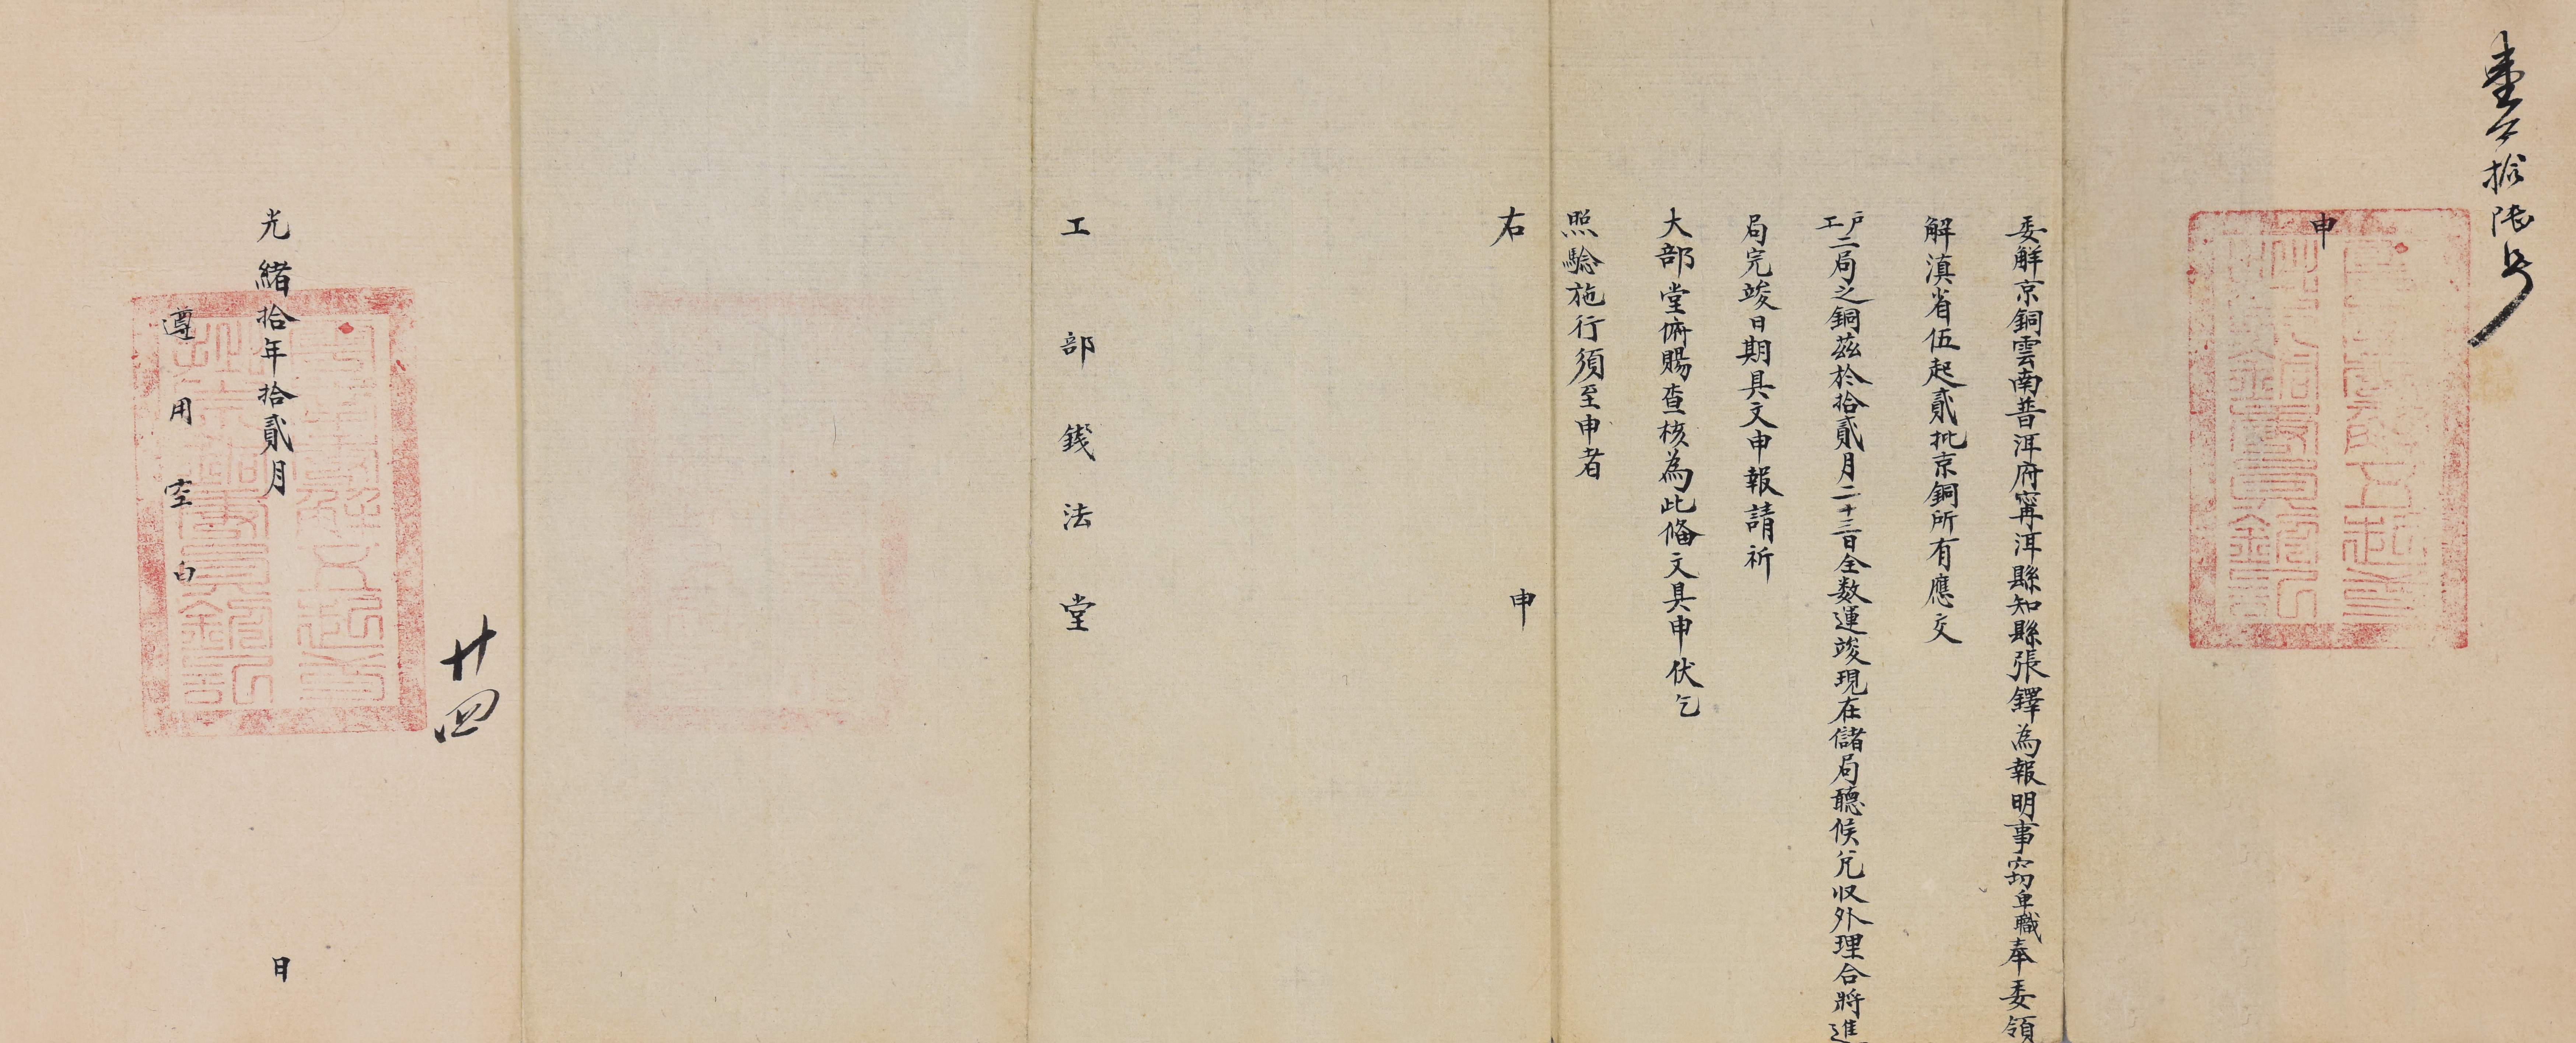 拾陸号
申
委解京銅雲南普洱府甯洱縣知縣張鐸為報明事竊卑職奉委領
解滇省伍起貳批京銅所有應交
戶工二局之銅茲於拾貳月二十三日全数運竣現在儲局聽候兌收外理合將進
局完竣日期具文申報請祈
大部堂俯賜查核為此俻文具申伏乞
照驗施行須至申者
右申
工部錢法堂
廿四
光緒拾年拾貳月日
遵用空白